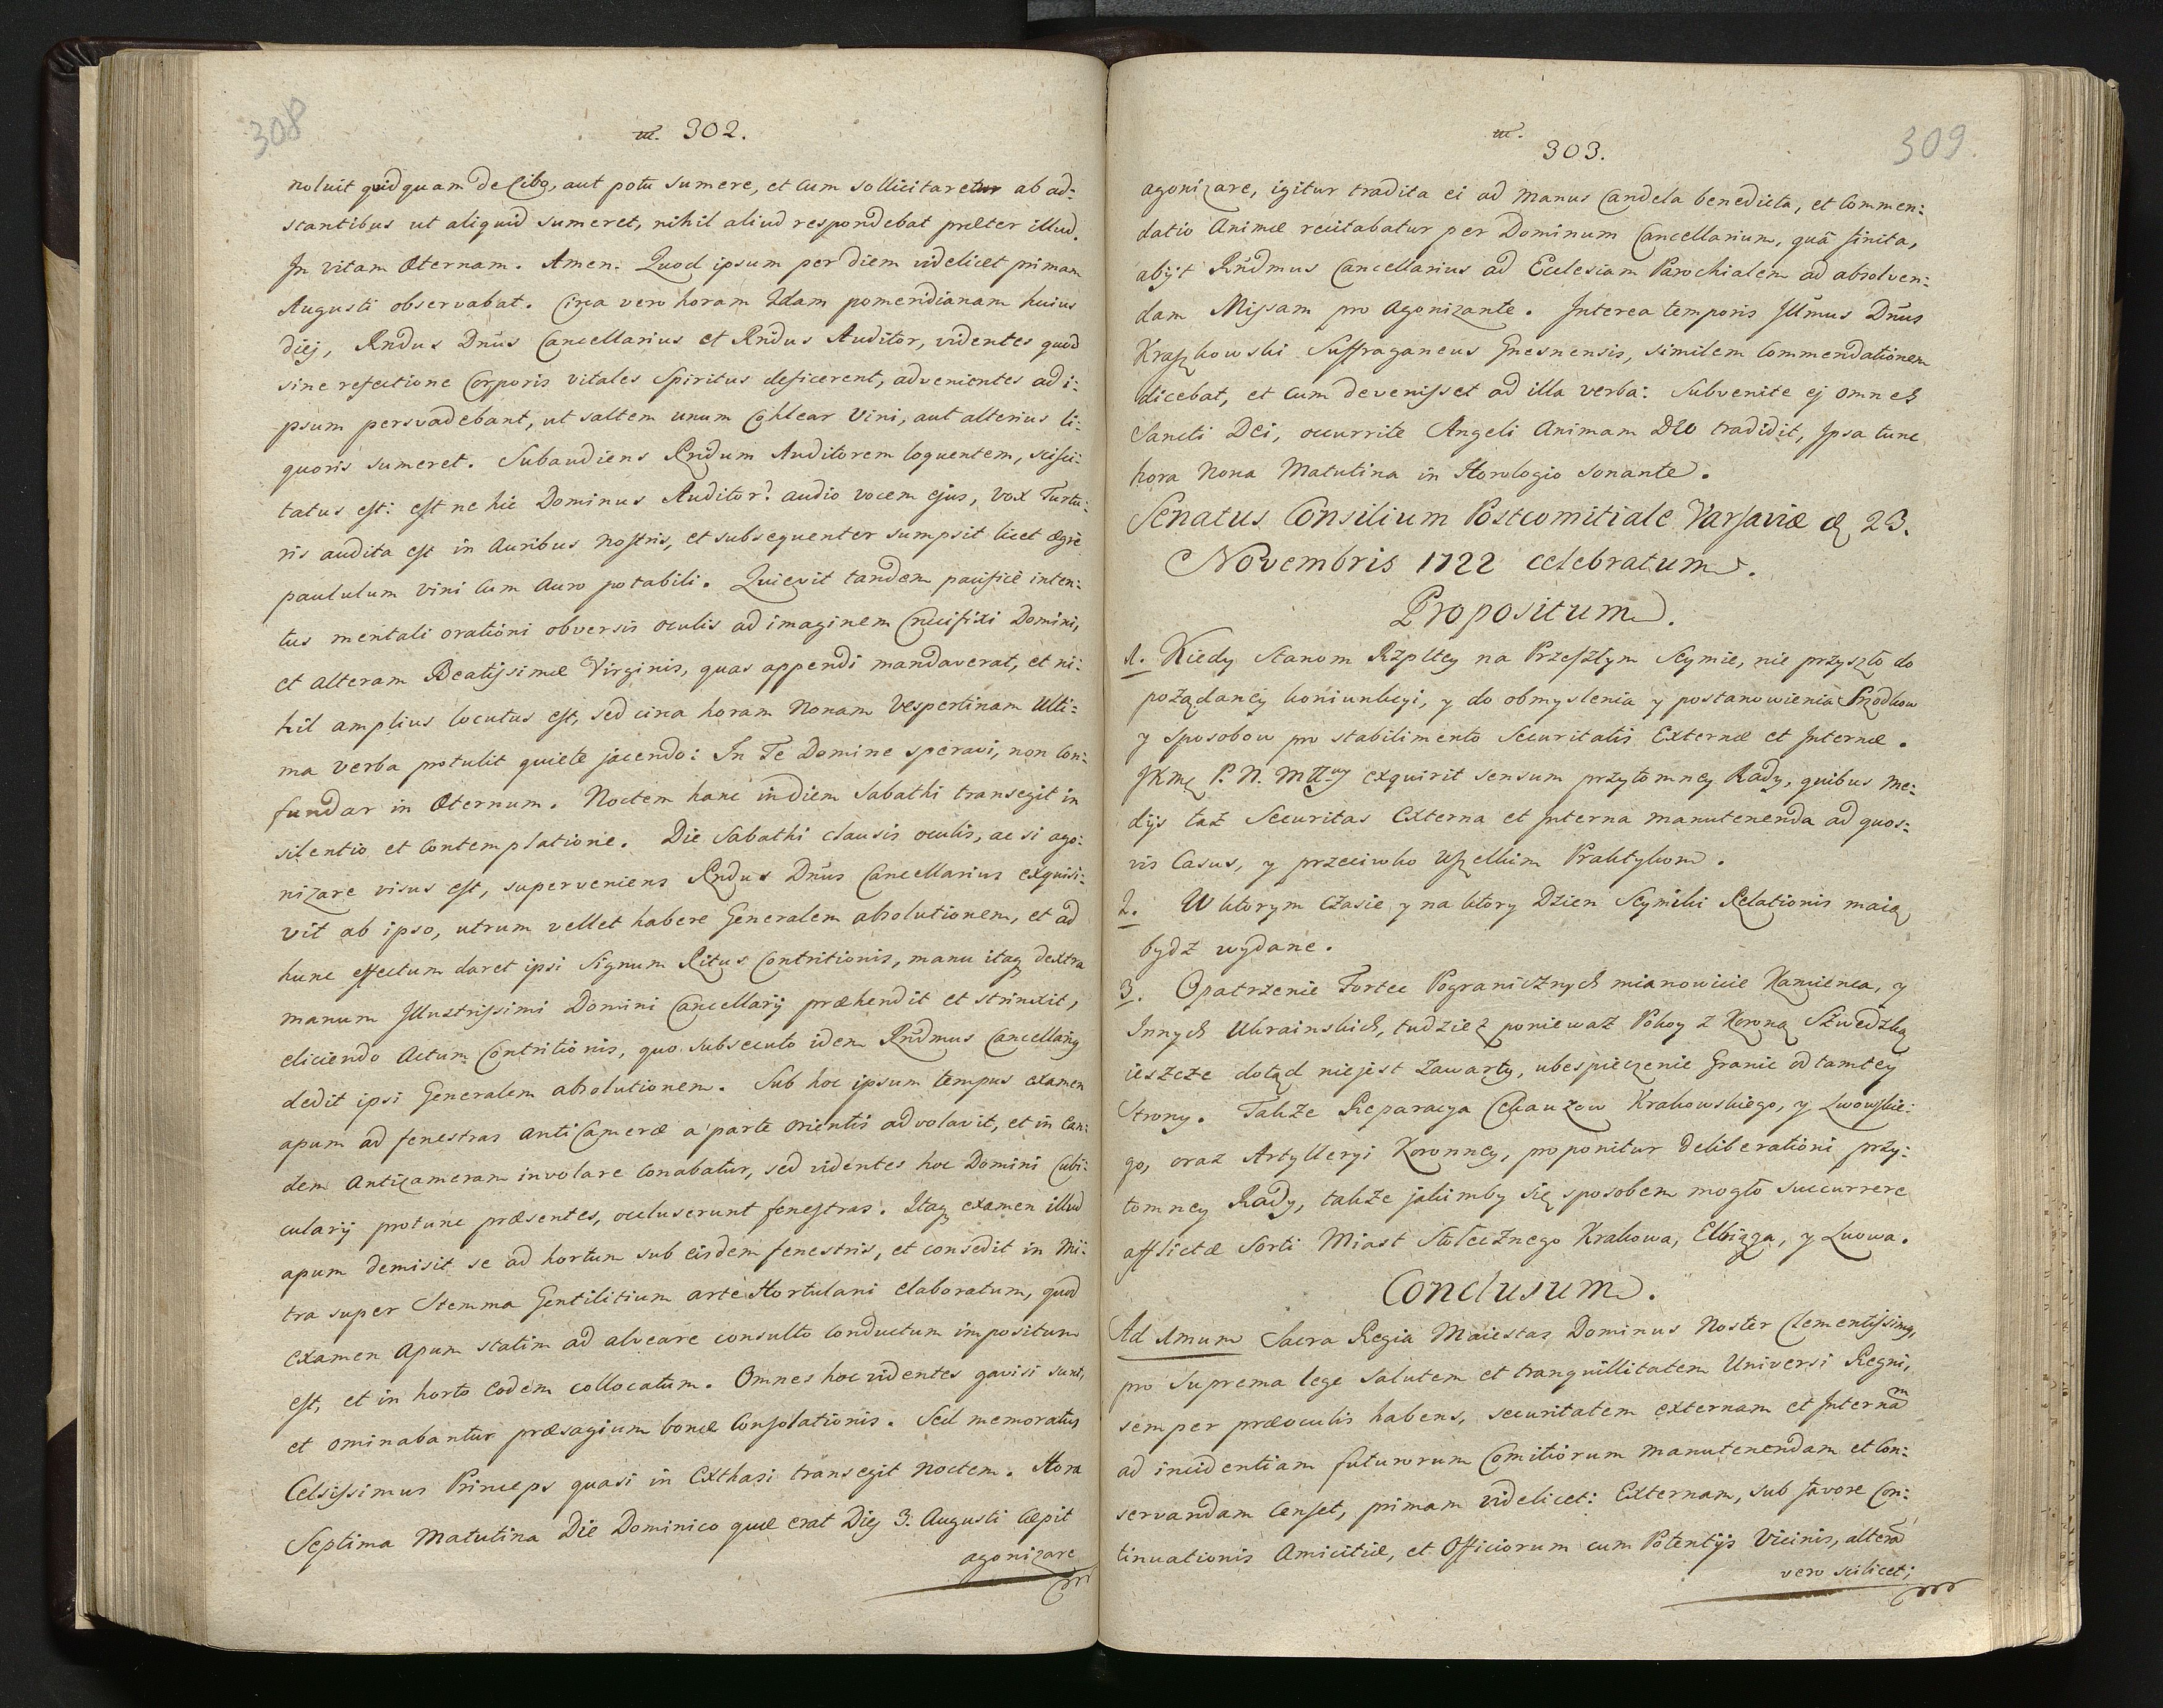 308
302.
noluit quidquam de Cibo, aut potu sumere, et cum sollicitaretur ab ad:
stantibus ut aliquid sumeret, nihil aliud respondebat præter illud.
In vitam Æternam. Amen. Quod ipsum per diem videlicet primam
Augusti observabat. Circa vero horam 2dam pomeridianam huius
diej, Rndus Dnus Cancellarius et Rndus Auditor, videntes quod
sine refectione Corporis vitales Spiritus deficerent, advenientes ad i:
psum persvadebant, ut saltem unum Cohlear Vini, aut alterius li:
quoris sumeret. Subaudiens Rndum Auditorem loquentem, scisci:
tatus est: est ne hic Dominus Auditor? audio vocem ejus, vox Turtu:
ris audita est in Auribus nostris, et subsequenter sumpsit licet ægrè
paululum vini cum Auro potabili. Quievit tandem pacificè inten:
tus mentali orationi obversis oculis ad imaginem Crucifixi Domini,
et alteram Beatissimæ Virginis, quas appendi mandaverat, et ni:
hil amplius locutus est, sed circa horam Nonam Vespertinam Ulti:
ma verba protulit quiete jacendo: In Te Domine speravi, non Con:
fundar in Æternum. Noctem hanc in diem Sabathi transegit in
silentio et Contemplatione. Die Sabathi clausis oculis, ac si ago:
nizare visus est, superveniens Rndus Dnus Cancellarius exquisi:
vit ab ipso, utrum vellet habere Generalem absolutionem, et ad
hunc effectum daret ipsi Signum Ritus Contritionis, manu itaq dextra
manum Illustrissimi Domini Cancellarij præhendit et strinxit,
eliciendo Actum Contritionis, quo subsecuto idem Rndmus Cancellarig
dedit ipsi Generalem absolutionem. Sub hoc ipsum tempus examen
apum ad fenestras antiCameræ a parte Orientis advolavit, et in Ean:
dem Anticameram involare Conabatur, sed videntes hoc Domini Cubi:
cularij protunc præsentes, occluserunt fenestras. Itaq examen illud
apum demisit se ad hortum sub eisdem fenestris, et consedit in Mi:
tra super Stemma Gentilitium arte Hortulani elaboratum, quod
examen Apum statim ad alveare consulto Conductum impositum
est, et in horto Eodem collocatum. Omnes hoc videntes gavisi sunt,
et ominabantur præsagium bonæ Consolationis. Sed memoratus
Celsissimus Princeps quasi in Exthasi transegit Noctem. Hora
Septima Matutina Die Dominico quæ erat Diej 3. Augusti Cæpit
agonizare
309.
303.
agonizare, igitur tradita ei ad manus Candela benedicta, et Commen:
datio Animæ recitabatur per Dominum Cancellarium, quâ finita,
abijt Rndmus Cancellarius ad Ecclesiam Parochialem ad absolven:
dam Missam pro Agonizante. Interea temporis Illmus Dnus
Kraszkowski Suffraganeus Gnesnensis, similem Commendationem
dicebat, et cum devenisset ad illa verba: Subvenite ej omnes
Sancti Dei, occurrite Angeli Animam DEO tradidit, Ipsa tunc
hora Nona Matutina in Horologio sonante.
Senatus Consilium Postcomitiale Varsaviæ d 23.
Novembris 1722 celebratum.
Propositum.
1. Kiedy Stanom Rzpltey na Przeszłym Seymie, nie przyszło do
pożądaney koniunkcyi, y do obmyslenia y postanowienia Srzodkow
y sposobow pro stabilimento Securitatis Externæ et Internæ.
JKmc P. N. Mttwy exquirit sensum przytomney Rady, quibus me:
dijs taż Securitas Externa et Interna manutenenda ad quos:
vis Casus, y przeciwko Wszelkim Praktykom.
2. W ktorym Czasie y na ktory Dzien Seymiki Relationis maią
bydz wydane.
3. Opatrzenie Fortec Pogranicznych mianowicie Kamienca, y
Innych Ukrainskich, tudziesz ponieważ Pokoy z Koroną Szwedzką
ieszcze dotąd niejest Zawarty, ubespieczenie Granic od tamtey
Strony. Także Reparacya Cekauzow Krakowskiego, y Lwowskie:
go, oraz Artylleryi Koronney, proponitur Deliberationi przy:
tomney Rady, także jakimby się sposobem mogło succurrere
afflictæ Sorti Miast Stołecznego Krakowa, Elbiąga, y Lwowa.
Conclusum.
Ad 1mum Sacra Regia Maiestas Dominus Noster Clementissimg,
pro Suprema lege Salutem et tranquillitatem Universi Regni,
semper præoculis habens, securitatem externam et Internam
ad incidentiam futurorum Comitiorum manutenendam et Con:
servandam Censet, primam videlicet: Externam, sub favore Con:
tinuationis Amicitiæ, et Officiorum cum Potentijs Vicinis, alteram
vero scilicet;